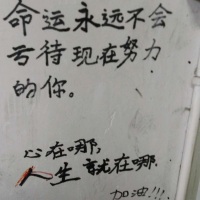 命运永远不会
亏待现在努力
的你。
心在哪,
人生就在哪
加油!!!